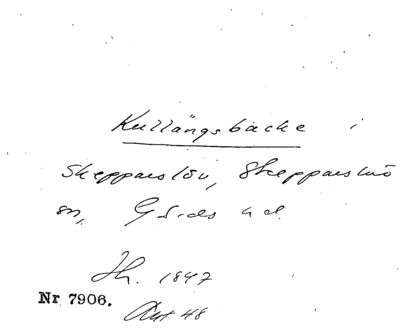 Kullängsbacke i
Skepparslöv, Skepparslövs
sn, Gärds hd.
Jh. 1847
Nr 7906.
Aut 48